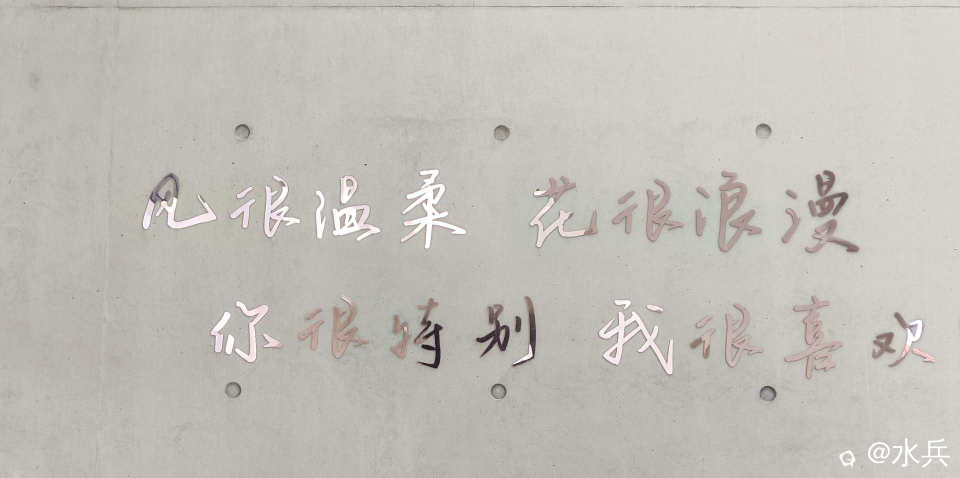 风很温柔 花很浪漫
你很特别 我很喜欢
@水兵